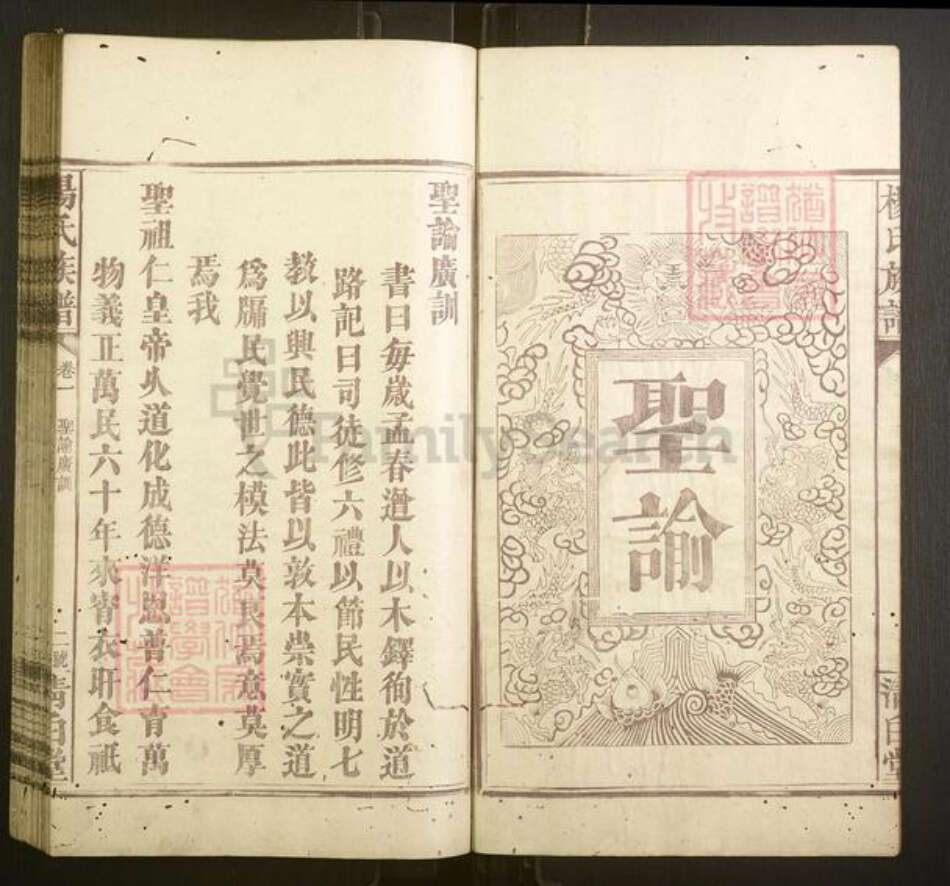 楊氏族譜
清白堂
聖諭
聖諭廣訓
書曰每歲孟春遒人以木鐸徇於道
路記曰司徒修六禮以節民性明七
教以興民德此皆以敦本崇實之道
為牖民覺世之模法莫良焉意莫厚
焉我
聖祖仁皇帝久道化成德洋恩普仁育萬
物義正萬民六十年來宵衣旰食祇
楊氏族譜
卷一
聖諭廣訓
清白堂
FamilySearch